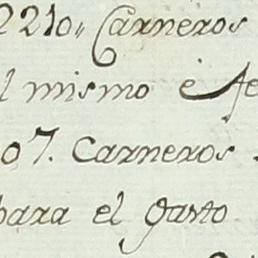 2210„ Carneros
l mismo é
07. Carneros
para el gasto